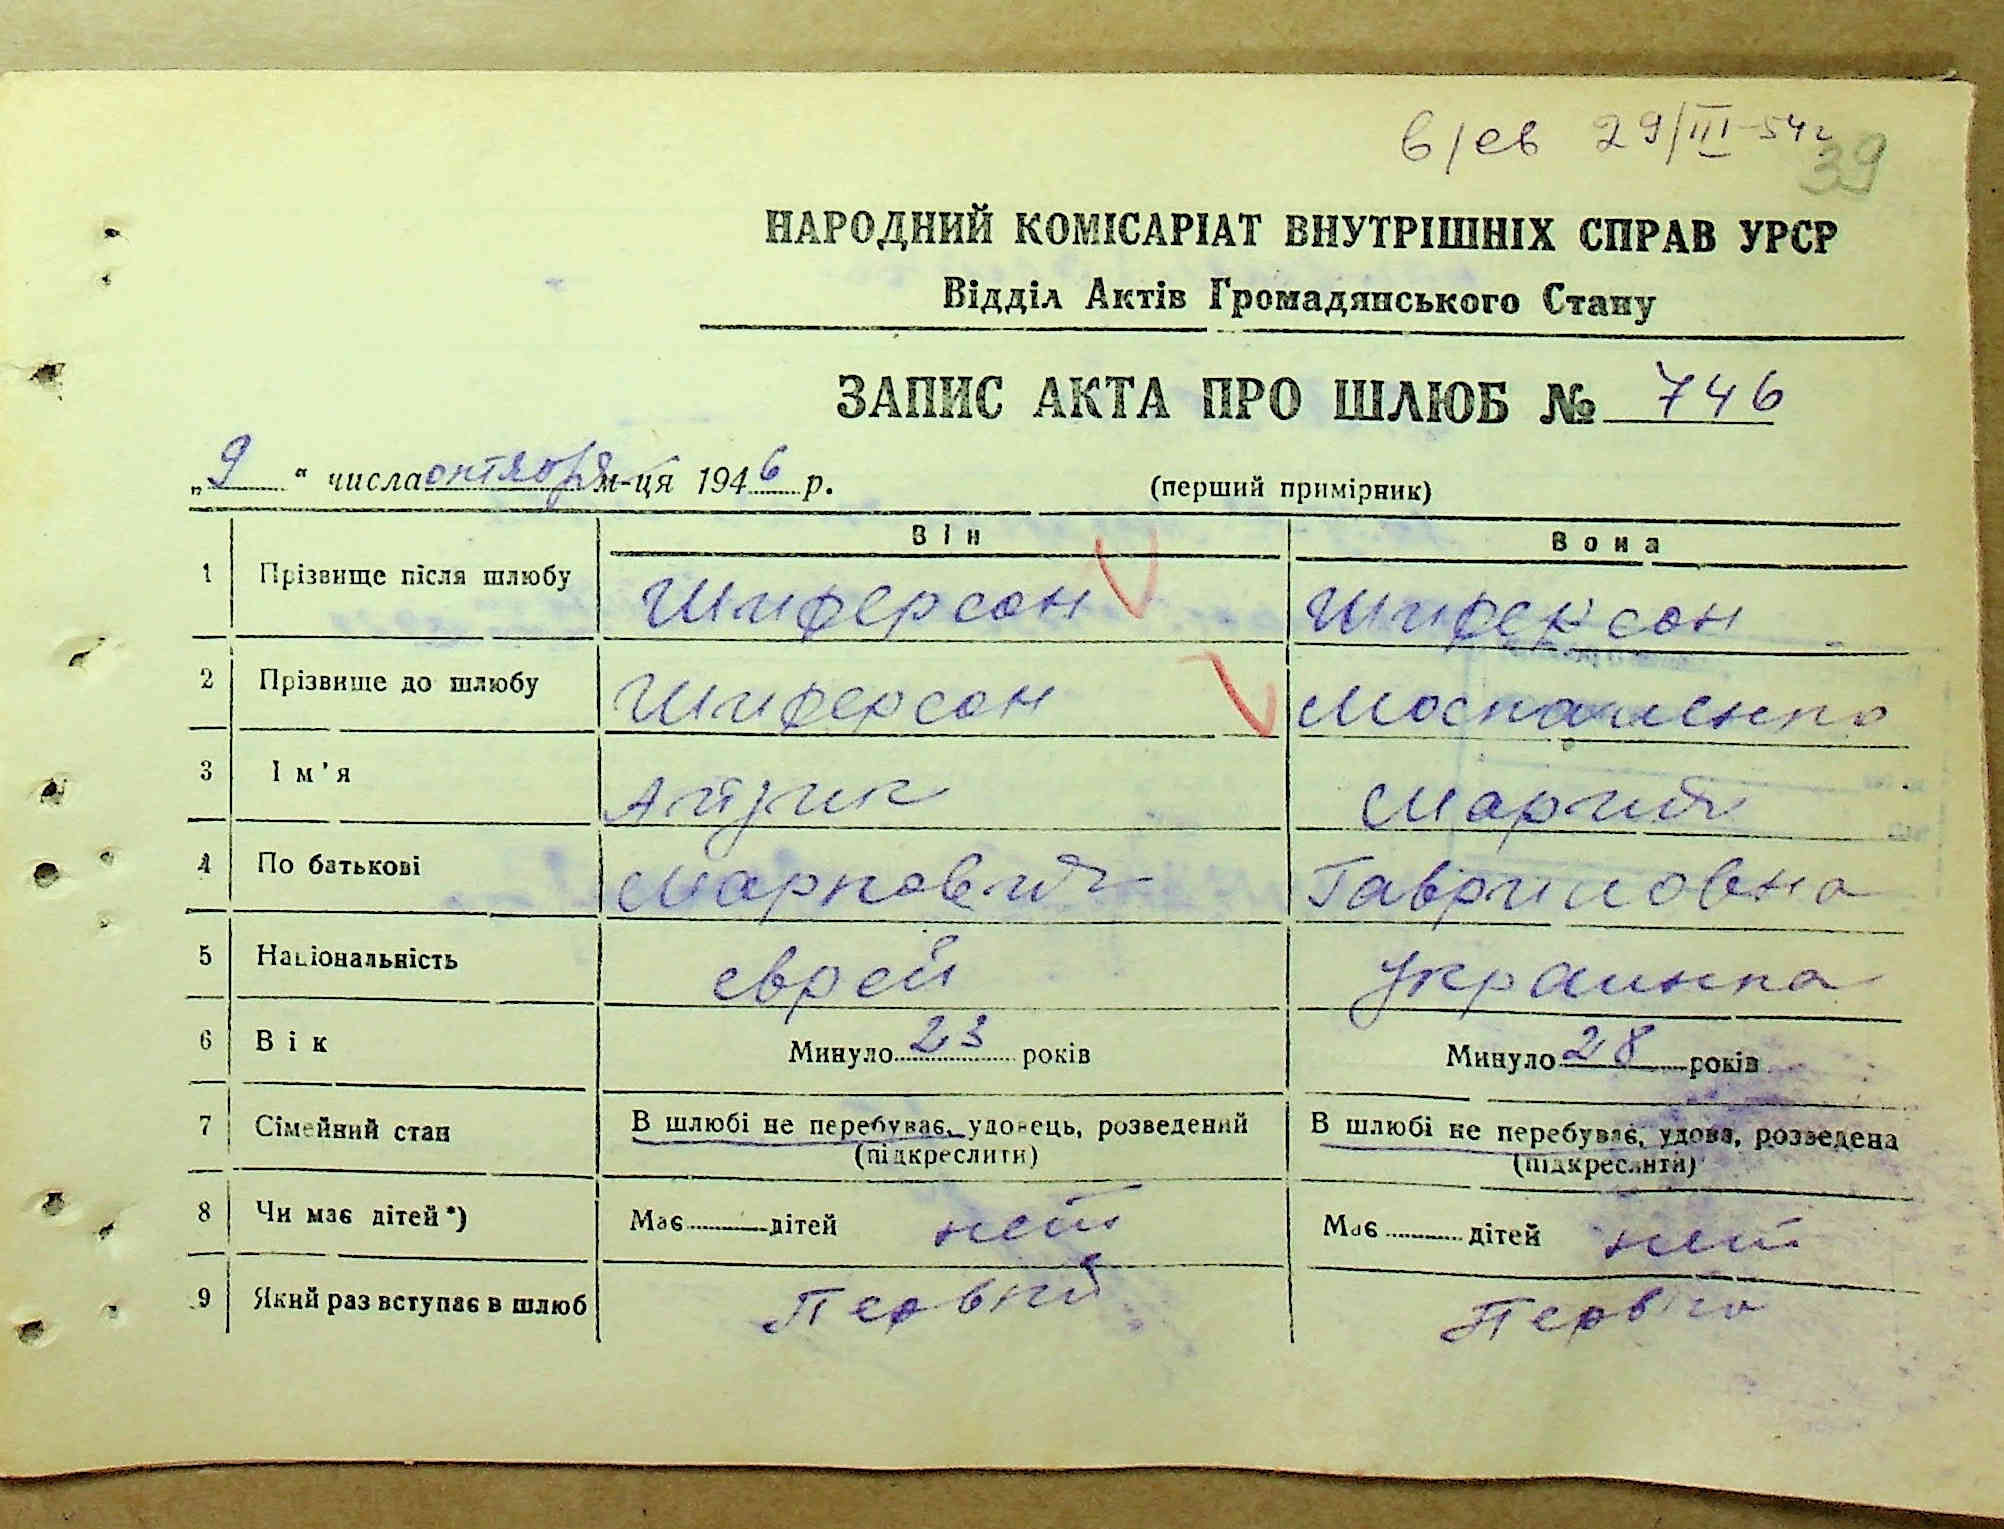 в/ев 29/III-54г
39
НАРОДНИЙ КОМІСАРІАТ ВНУТРІШНІХ СПРАВ УРСР
Відділ Актів Громадянського Стану
ЗАПИС АКТА ПРО ШЛЮБ № 746
„9“ числа октября м-ця 1946 р. (перший примірник)
Він Вона
1 Прізвище після шлюбу Шиферсон Шиферсон
2 Прізвище до шлюбу Шиферсон Москаленко
3 Ім'я Айзик Мария
4 По батькові Маркович Гавриловна
5 Національність еврей украинка
6 Вік Минуло 23 років Минуло 28 років
7 Сімейний стан В шлюбі не перебуває, удовець, розведений В шлюбі не перебуває, удова, розведена
(підкреслити) (підкреслити)
8 Чи має дітей*) Має дітей нет Має дітей нет
9 Який раз вступає в шлюб Первый